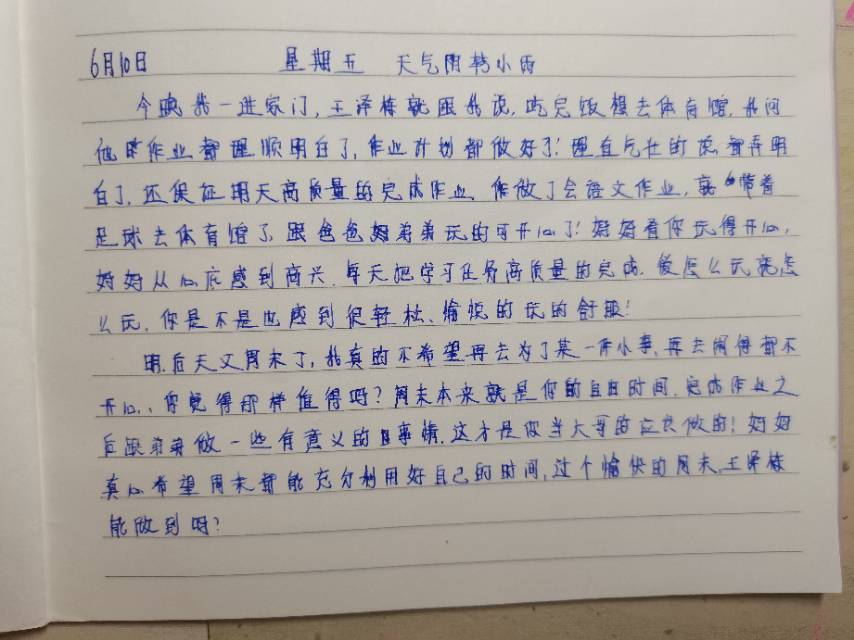 6月10日 星期五 天气阴转小雨
今晚我一进家门,王泽栋就跟我说,吃完饭想去体育馆,我问
他时作业都理顺明白了,作业计划都做好了!理直气壮的说都弄明
白了,还保证明天高质量的完成作业,作做了会语文作业,就带着
足球去体育馆了,跟爸爸和弟弟玩的可开心了!妈妈看你玩得开心,
妈妈从心底感到高兴,每天把学习任务高质量的完成,爱怎么玩就怎
么玩,你是不是也感到很轻松、愉快的玩的舒服!
明、后天又周末了,我真的不希望再去为了某一件小事,再去闹得都不
开心,你觉得那样值得吗?周末本来就是你的自由时间,完成作业之
后跟弟弟做一些有意义的事情,这才是你当大哥的应该做的!妈妈
真心希望周末都能充分利用好自己的时间,这个愉快的周末,王泽栋
能做到吗?